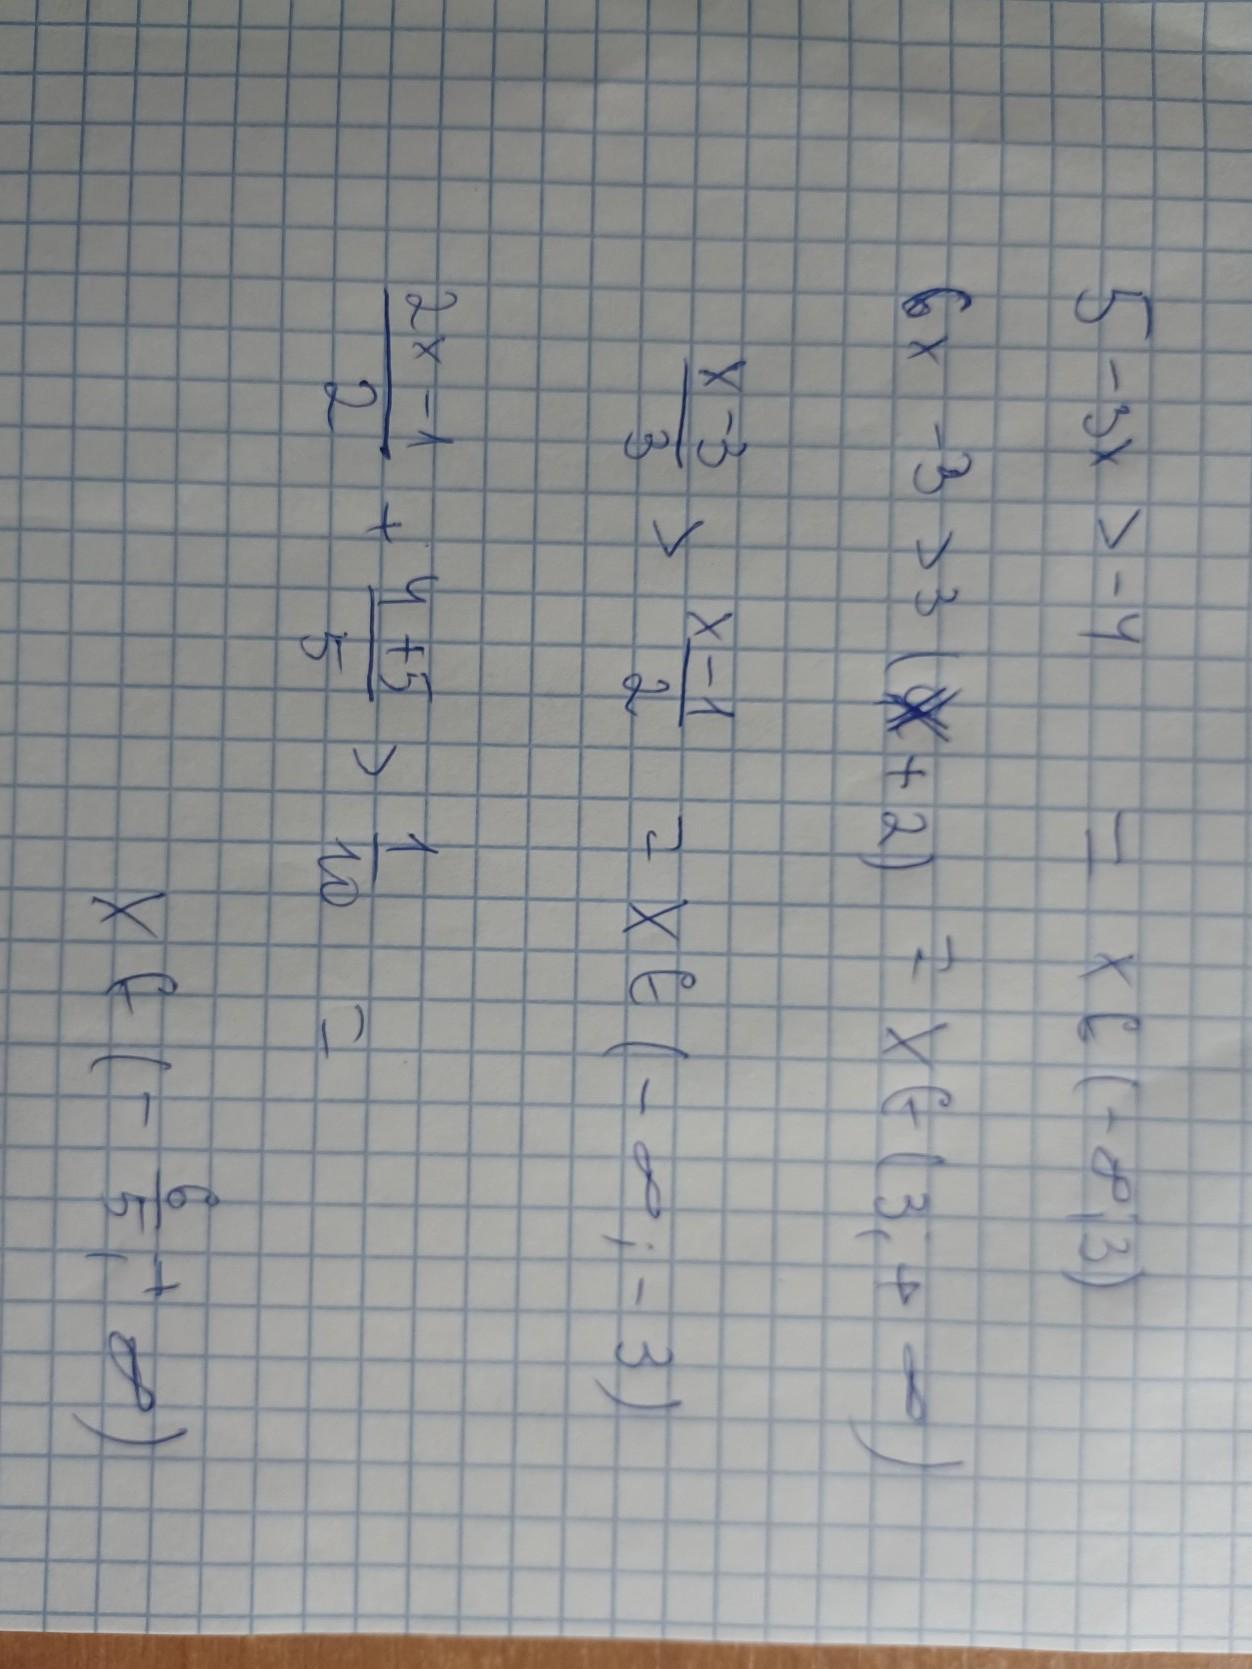 5 - 3x > -4 = x ∈ (-∞; 3)
6x - 3 > 3 (x + 2) = x ∈ (3; + ∞)
\frac{x - 3}{3} > \frac{x - 1}{2} = x ∈ (- ∞; - 3)
\frac{2x - 1}{2} + \frac{4 + 5}{5} > \frac{1}{10} =
x ∈ (- \frac{6}{5}; + ∞)